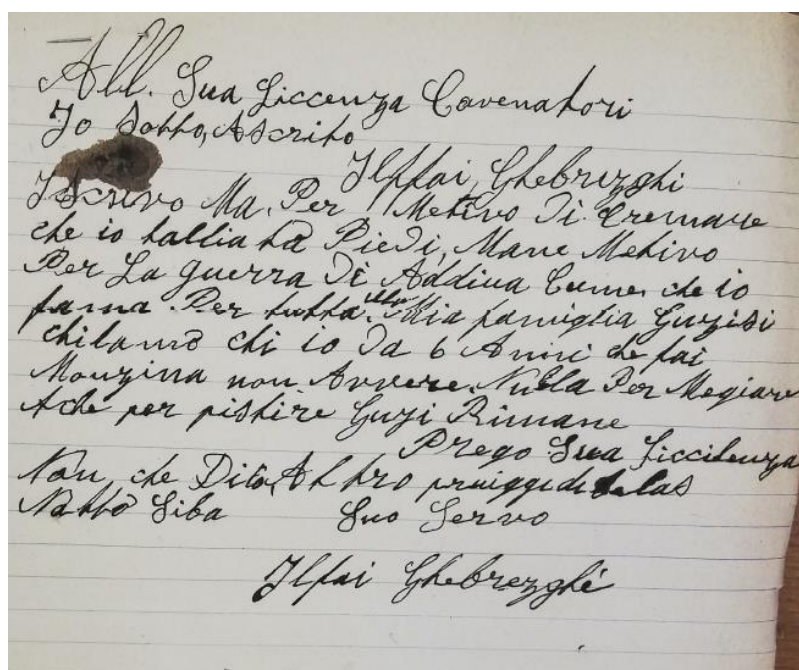 All. Sua Liccenza Cavenatori
Jo Sotto, Ascrito
Ilffai, Ghebrezghi
Iscrivo Ma. Per Metivo Di. Cremare
che io tallia ta Piedi, Mane Metivo
Per La guerra Di Addiua Cume, che io
fama. Per tutta. Mia famiglia Guzisi
chilamo chi io Da 6 Anni che fai
Mouzina non Avvere. Nulla Per Megiare
Ache per pistire Guzi Rimane
Prego Sua Liccilenza
Non, che Dito, Altro
Natto Liba Suo Servo
Ilffai Ghebrezghi